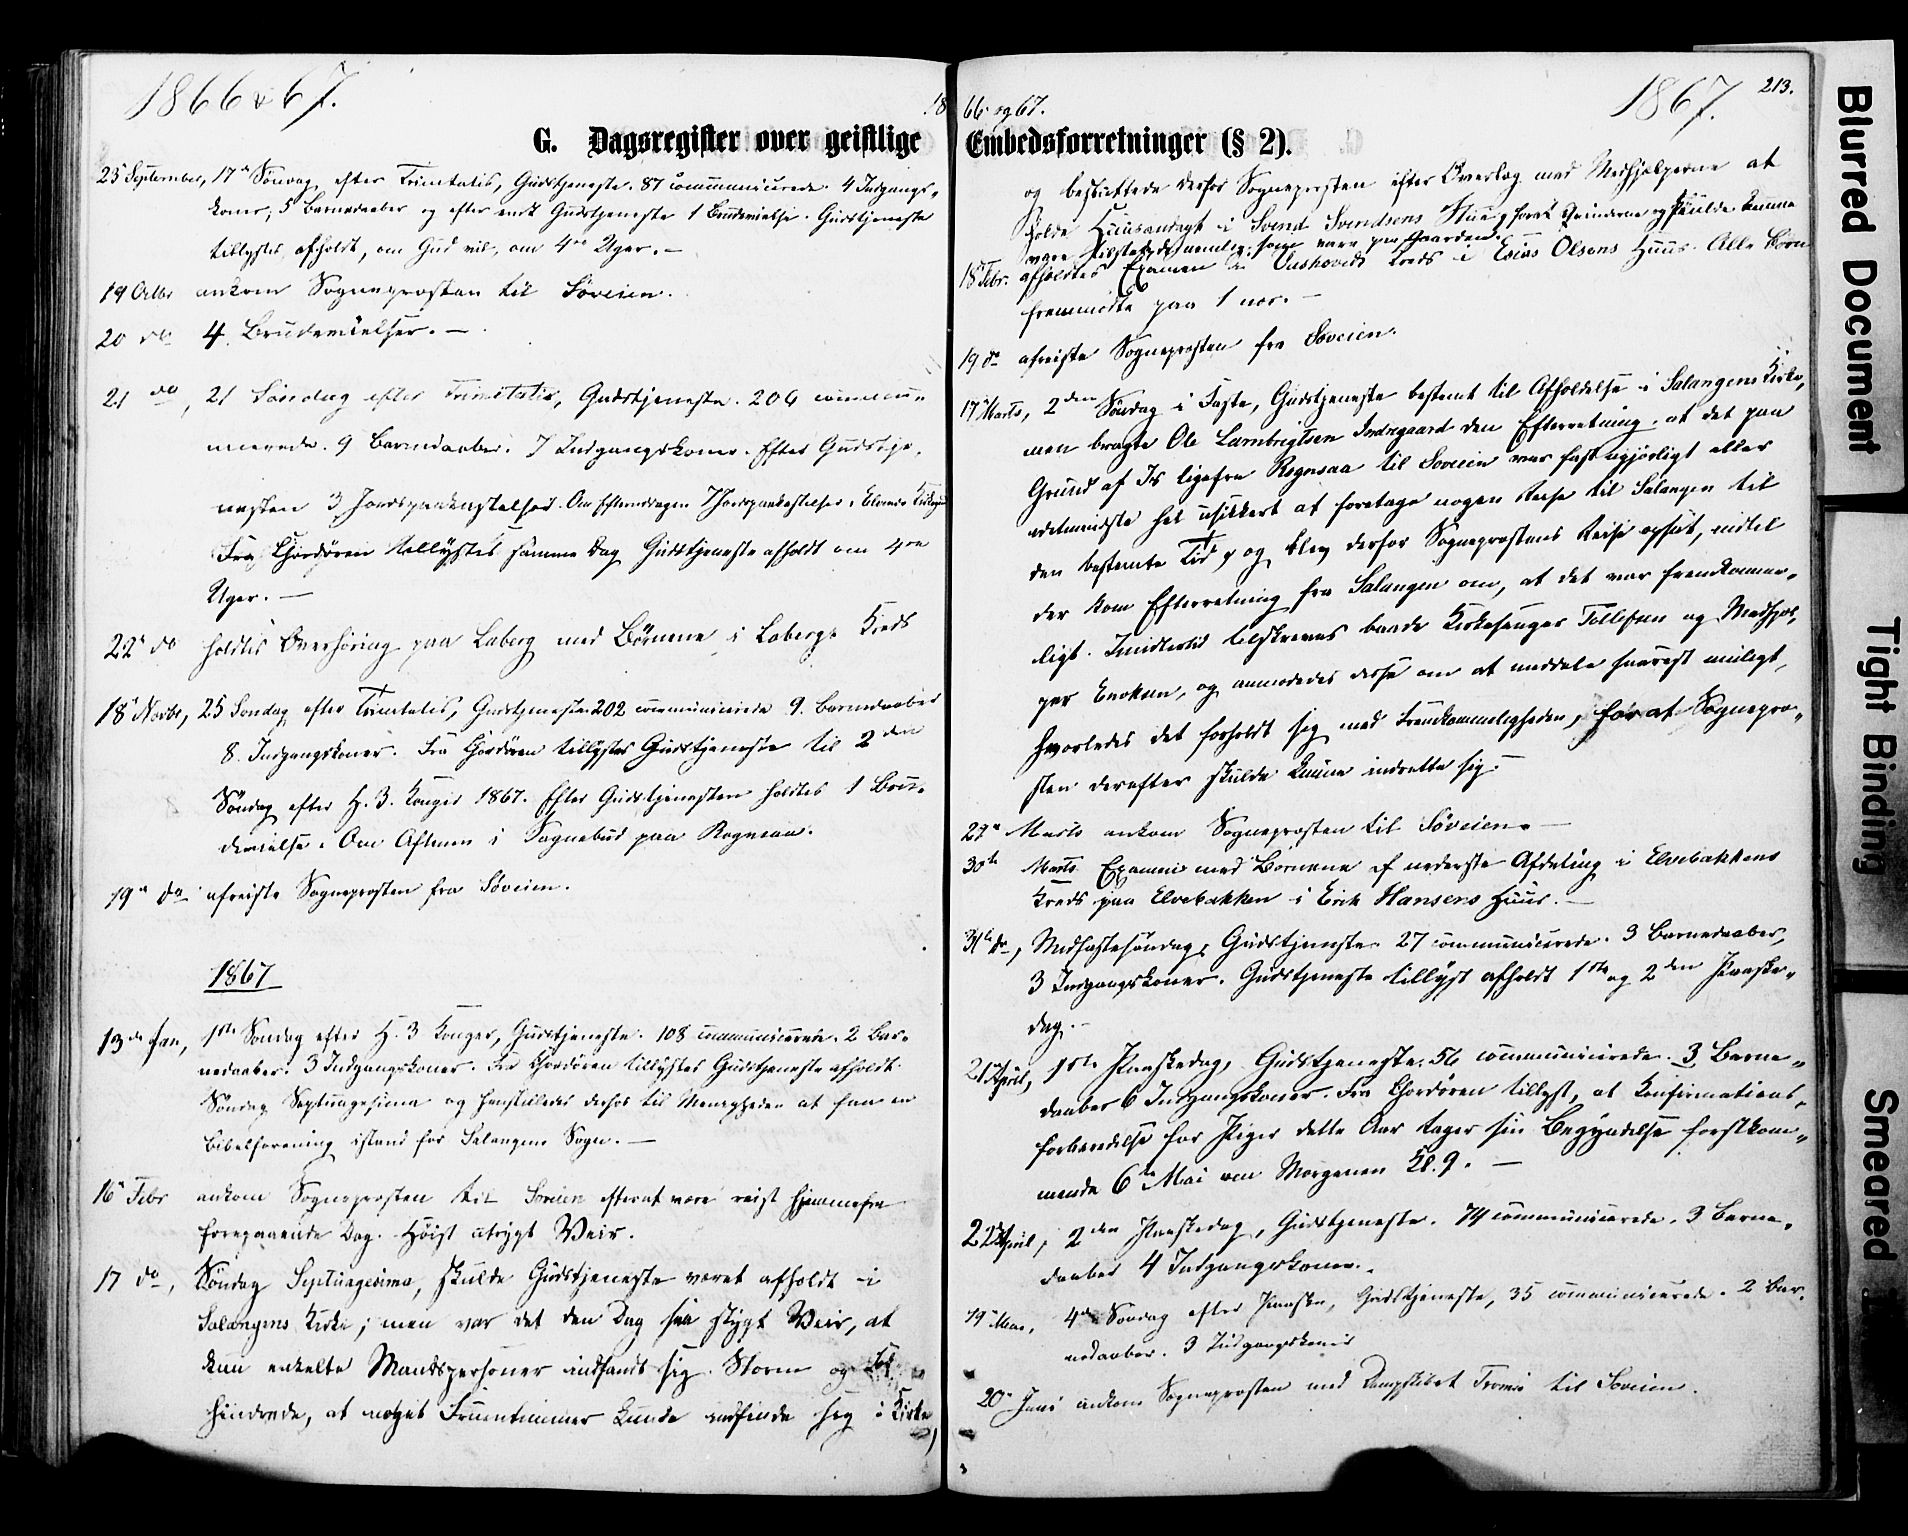 1866 & 67.
G. Dagsregister over geistlige
23de September, 17de Søndag efter Trinitatis, Gudstjeneste. 87 communicerede. 4 Indgangs-
koner, 5 Barnedaaber og efter endt Gudstjeneste 1 Brudevielse. Gudstjeneste
tillystes afholdt, om Gud vil, om 4re Uger. —
19 Octbr ankom Sognepræsten til Søveien.
20 do 4 Brudevielser. —
21 do, 21 Søndag efter Trinitatis, Gudstjeneste. 206 commu-
nicerede. 9 Barnedaaber. 7 Indgangskoner. Efter Gudstje-
nesten 3 Jordspaakastelser. Om Eftermiddagen 7 Jordspaakastelser i Elvenes
Fra Chordøren tillystes samme Dag Gudstjeneste afholdt om 4re
Uger. —
22de do holdtes Overhøring paa Laberg med Børnene i Labergs Kreds
18de Novbr, 25 Søndag efter Trinitatis, Gudstjeneste 202 communicerede 9. Barnedaaber
8 Indgangskoner. Fra Chordøren tillystes Gudstjeneste til 2den
Søndag efter H. 3. Konger 1867. Efter Gudstjenesten holdtes 1 Bru-
devielse. Om Aftenen i Sognebud paa Rognsaa.
19de do afreiste Sognepræsten fra Søveien.
1867
13de Jan, 1ste Søndag efter H. 3 Konger, Gudstjeneste. 108 communicerede. 2 Bar-
nedaaber. 3 Indgangskoner. Fra Chordøren tillystes Gudstjeneste afholdt
Søndag Septuagesima og henstilledes derhos til Menigheden at faa en
Bibelforening istand for Salangens Sogn. —
16de Febr ankom Sognepræsten til Søveien efterat være reist hjemmefra
foregaaende Dag. Høist stygt Veir.
17 do, Søndag Septuagesima, skulde Gudstjeneste været afholdt i
Salangens Kirke; men var det den Dag saa stygt Veir, at
kun enkelte Mandspersoner indfandt sig. Storm og
hindrede, at noget Fruentimmer kunde indfinde sig i Kirke,
1867. 213.
1866 og 67.
Embedsforretninger (§ 2).
og besluttede derfor Sognepræsten efter Overlæg med Medhjælperne at
holde Huusandagt i Svend Svendsens Stue, hvor Qvinderne og kunne
være tilstede, nemlig som vare paa Gaarden.
18de Febr. afholdtes Examen i Kreds i Esias Olsens Huus. Alle Børn
fremmødte paa 1 nær. —
19 do afreiste Sognepræsten fra Søveien.
17de Marts, 2den Søndag i Faste, Gudstjeneste bestemt til Afholdelse i Salangens Kirke,
men bragte Ole Lambrigtsen Indregaard den Efterretning, at det paa
Grund af Is ligefra Rognsaa til Søveien var fast ugjørligt eller
idetmindste høist usikkert at foretage nogen Reise til Salangen til
den bestemte Tid, og blev derfor Sognepræstens Reise opsat, indtil
der kom Efterretning fra Salangen om, at det var fremkomme-
ligt. Imidlertid tilskreves baade Kirkesanger Tollefsen og Medhjæl-
per Enoksen, og anmodedes disse om at meddele snarest muligt,
hvorledes det forholdt sig med Fremkommeligheden, for at Sognepræ-
sten derefter skulde kunne indrette sig. —
29de Marts ankom Sognepræsten til Søveien. —
30te Marts Examen med Børnene af nederste Afdeling i Elvebakkens
Kreds paa Elvebakken i Erik Hansens Huus. —
31te do, Midfastesøndag, Gudstjeneste 27 communicerede. 3 Barnedaaber,
3 Indgangskoner. Gudstjeneste tillyst afholdt 1ste og 2den Paaske-
dag. —
21de April, 1ste Paaskedag, Gudstjeneste. 56 communicerede. 3 Barne-
daaber 6 Indgangskoner. Fra Chordøren tillyst, at Konfirmations-
forberedelse for Piger dette Aar tager sin Begyndelse førstkom-
mende 6te Mai om Morgenen Kl. 9. —
22de April, 2den Paaskedag, Gudstjeneste. 74 communicerede. 3 Barne-
daaber 4 Indgangskoner.
19de Mai, 4de Søndag efter Paaske, Gudstjeneste, 35 communicerede. 2 Bar-
nedaaber. 3 Indgangskoner
20de Juni ankom Sognepræsten med Dampskibet Tromsø til Søveien.
Blurred Document
Tight Binding
Smeared